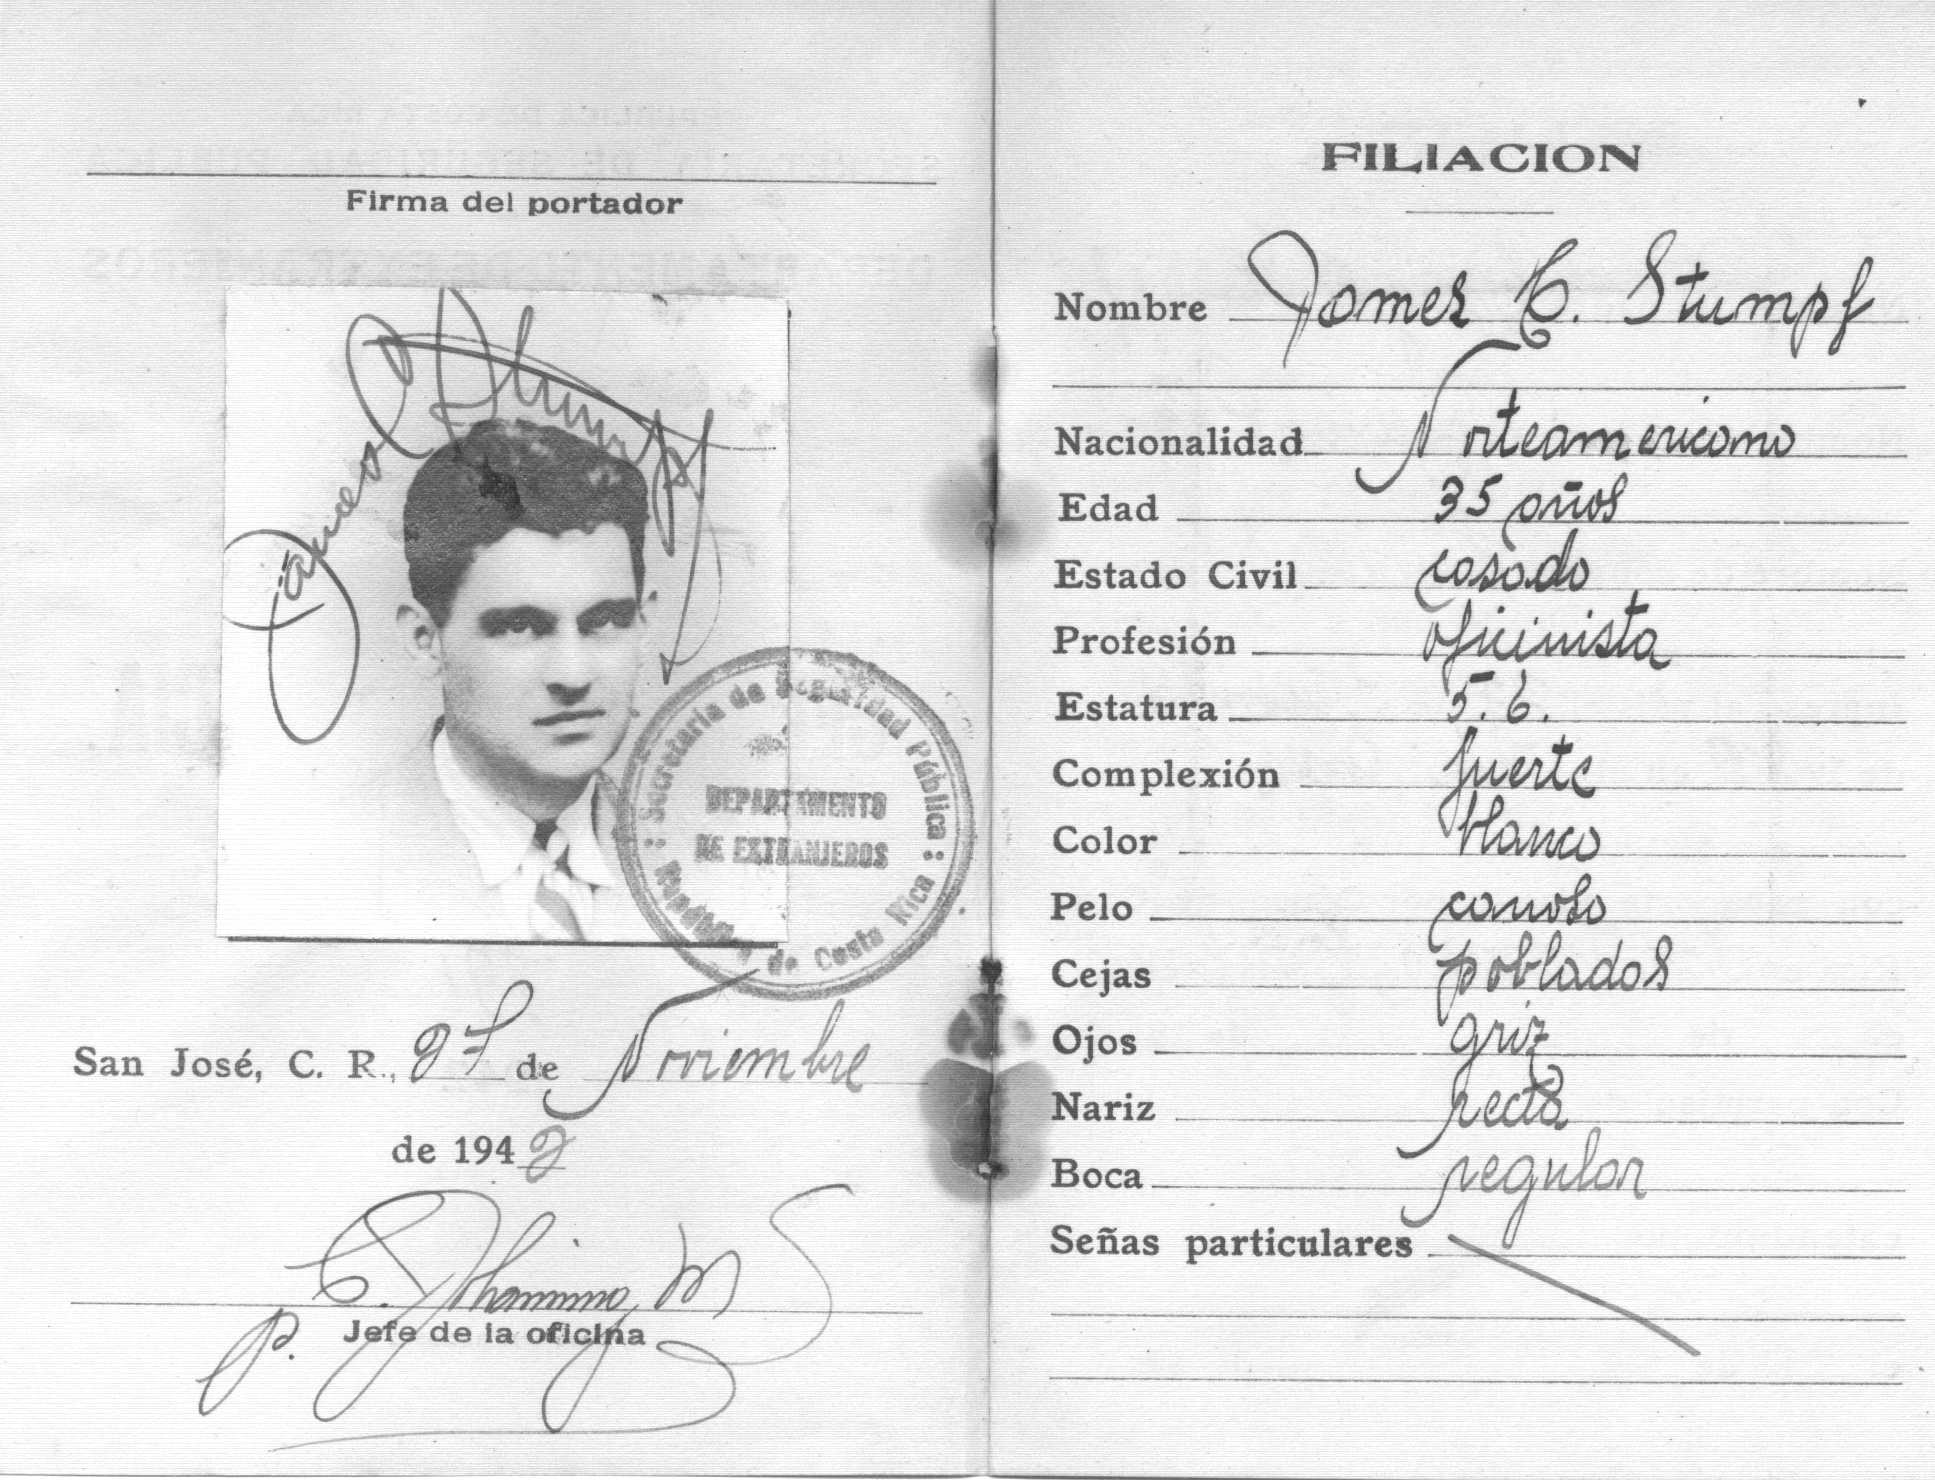 Firma del portador
James Stumpf
Secretaría de Seguridad Pública : República de Costa Rica :
DEPARTAMENTO
DE EXTRANJEROS
San José, C. R., 27 de Noviembre
de 1942
p.
Jefe de la oficina
FILIACION
Nombre James C. Stumpf
Nacionalidad Norteamericano
Edad 35 años
Estado Civil casado
Profesión oficinista
Estatura 5.6.
Complexión fuerte
Color blanco
Pelo canoso
Cejas pobladas
Ojos griz
Nariz recta
Boca regular
Señas particulares